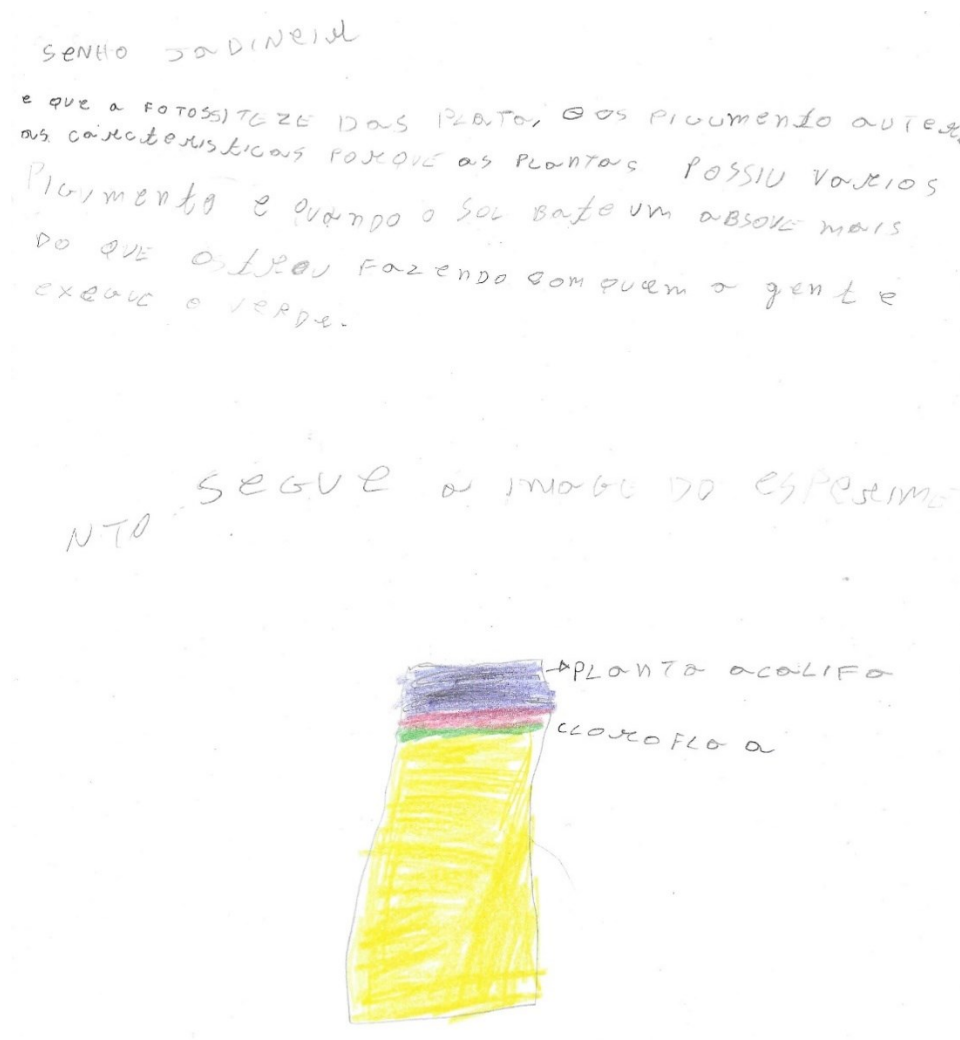 SENHO JADINEIR
e QUE a FOTOSSITEZE Das PLATO, e os PIGUMENTO auTERA
as cáracteristicas PORQUE as PLanTas POSSIU VaRIOS
PIGIMENTO e QUANDO O SOL BaTe UM aBSOVE mais
DO QUE OUTROU FAZENDO COM QUEM a gente
exegue o VERDe.
SEGUE a IMAGE DO ESPERIME
NTO
PLanTa acaLIFa
CLOROFLO a